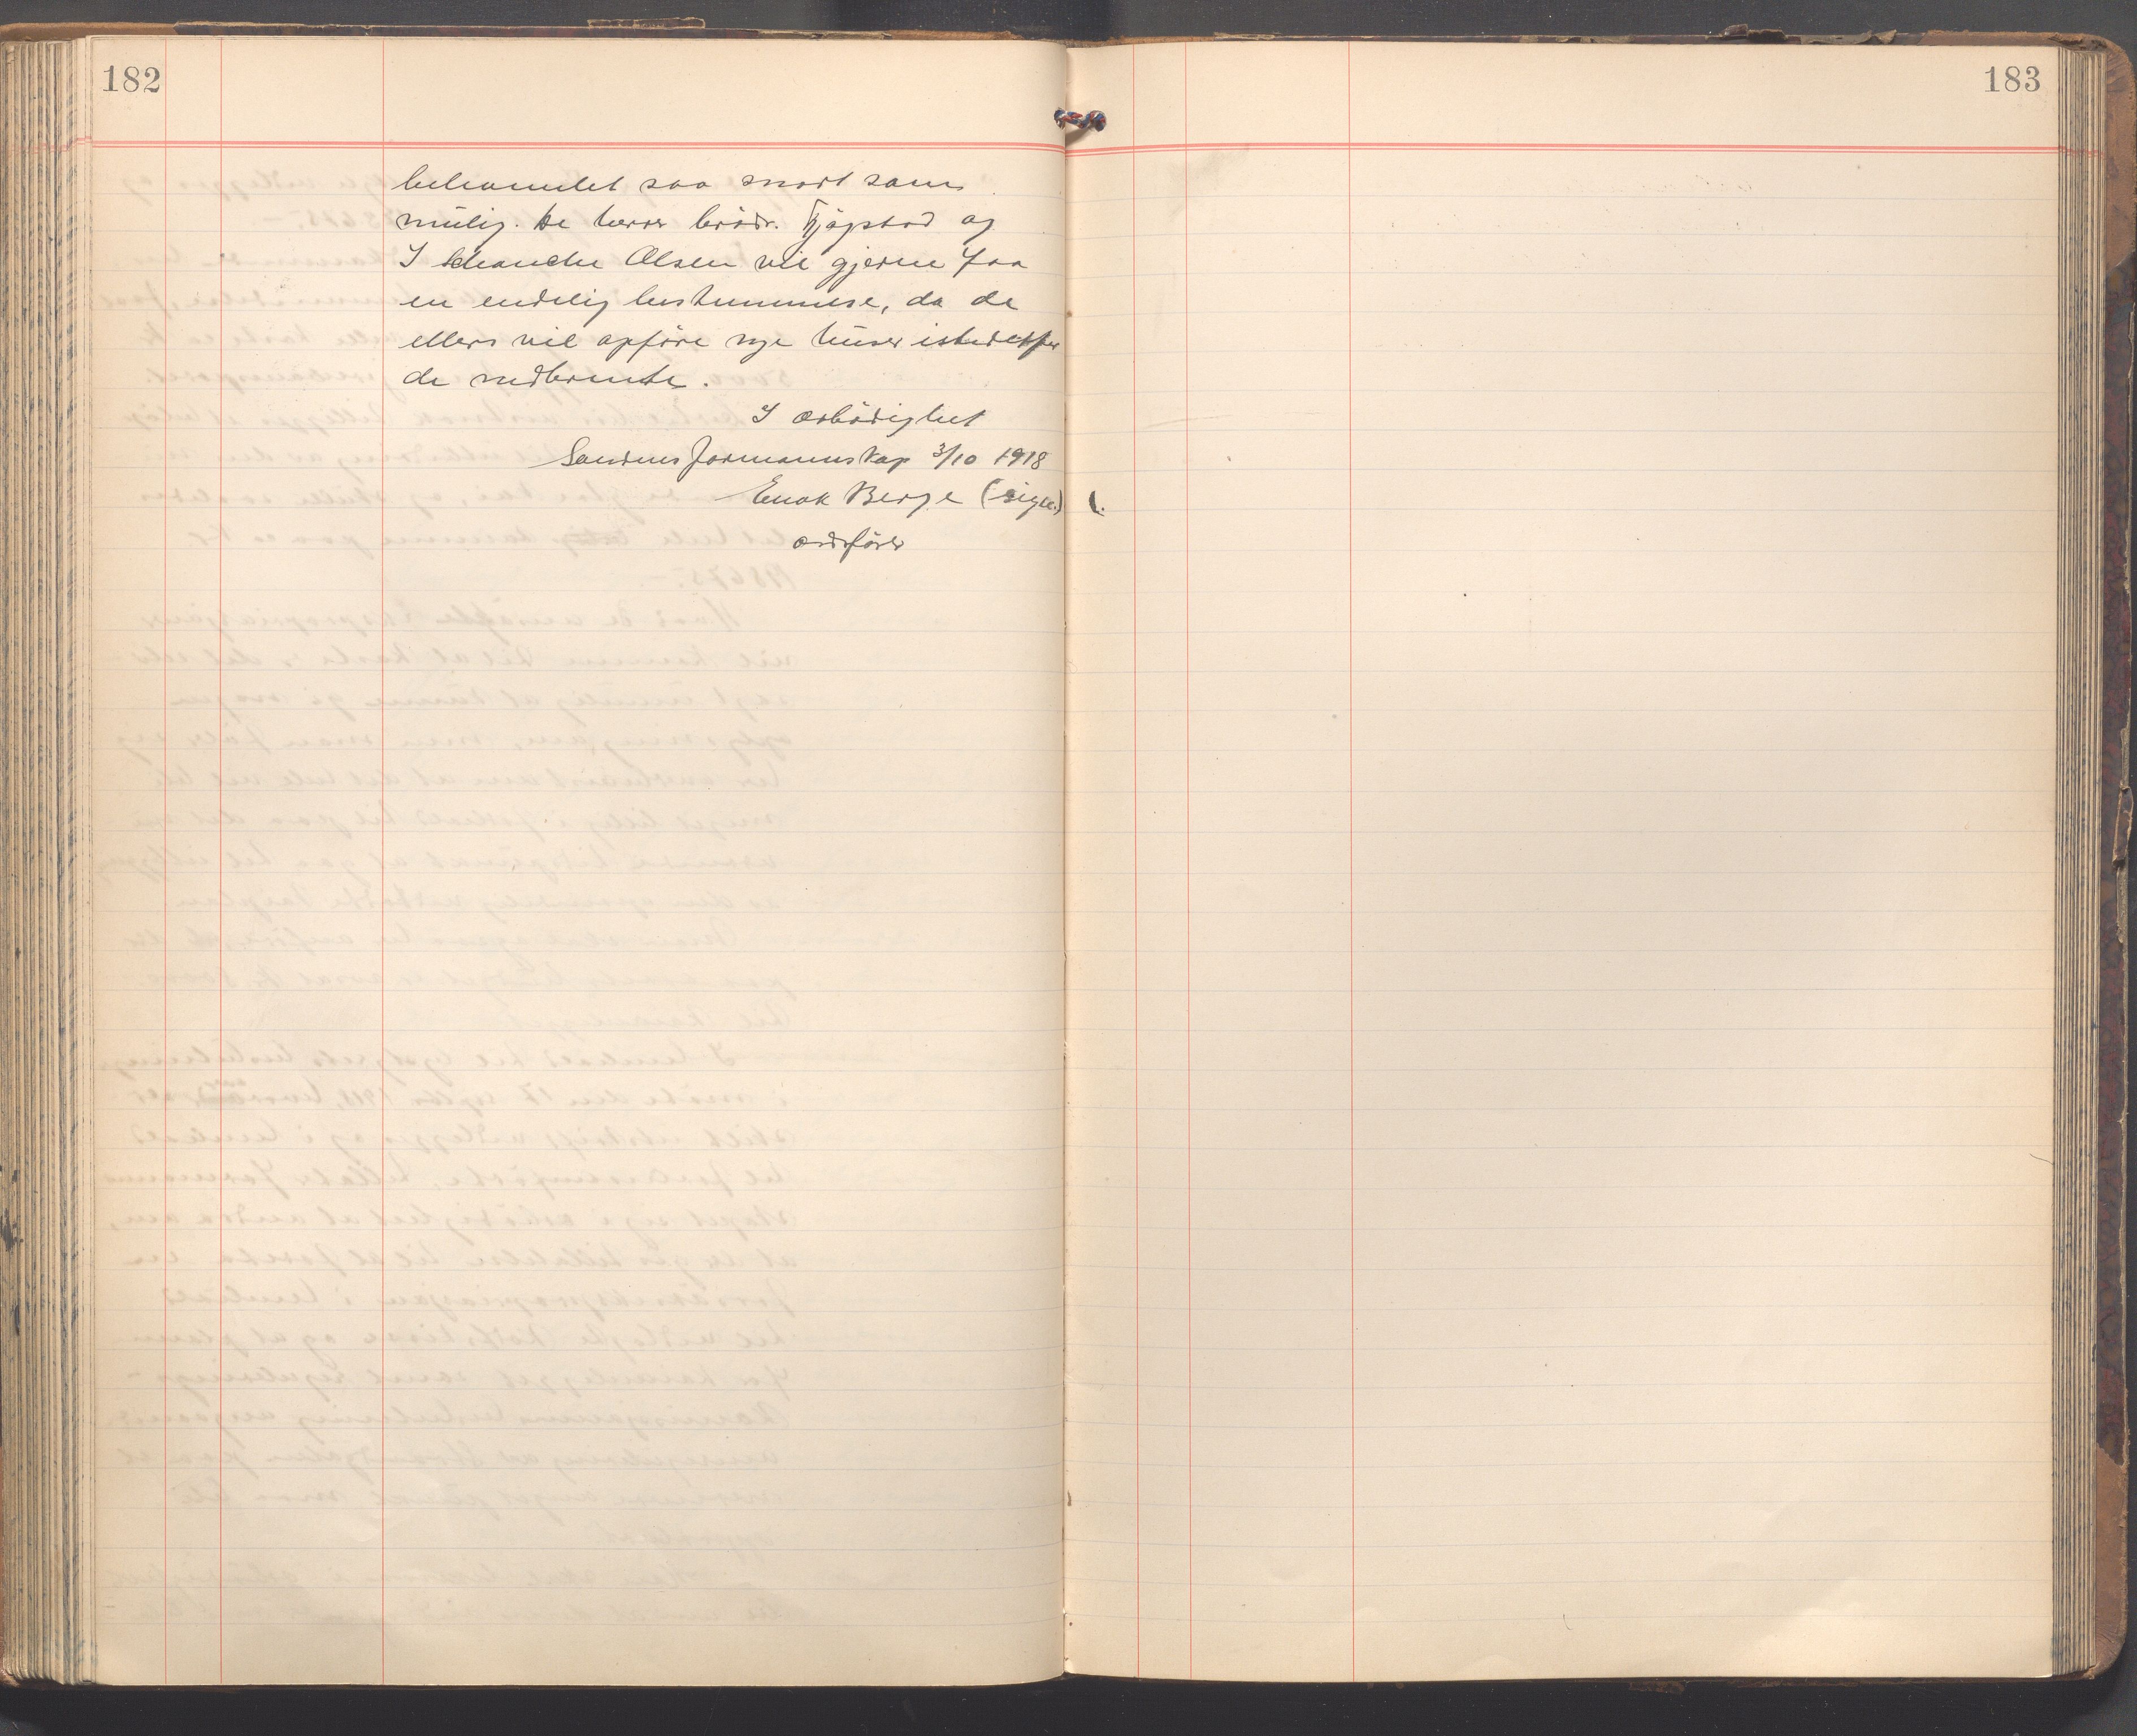 182
183
behandlet saa snart som
mulig. De herrer brödr. Kjöpstad og
I Schancke Olsen vil gjerne faa
en endelig bestemmelse, da de
ellers vil opföre nye huser istedetfor
de nedbrente.
I ærbödighet
formannskap 3/10 1918
Enok Berge (sign.)
ordförer